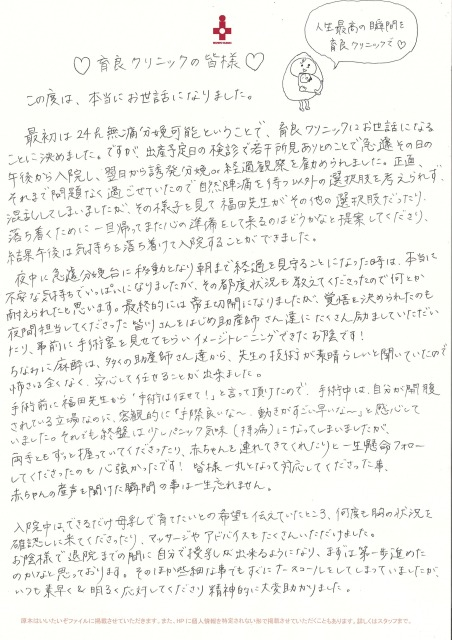 人生最高の瞬間を
育良クリニックで♡
♡ 育良クリニックの皆様 ♡
この度は、本当にお世話になりました。
最初は24h無痛分娩可能ということで、育良クリニックにお世話になる
ことに決めました。ですが、出産予定日の検診で若干所見ありとのことで急遽その日の
午後から入院し、翌日から誘発分娩or経過観察を勧められました。正直、
それまで問題なく過ごせていたので自然陣痛を待つ以外の選択肢を考えられず、
混乱してしまいましたが、その様子を見て福田先生がその他の選択肢だったり、
落ち着くために一旦帰ってまた心の準備をして来るのはどうかなと提案してくださり、
結果午後は気持ちを落ち着けて入院することができました。
夜中に急遽分娩台に移動となり朝まで経過を見守ることになった時は、本当に
不安な気持ちでいっぱいになりましたが、その都度状況も教えてくださったので何とか
耐えられたと思います。最終的には帝王切開になりましたが、覚悟を決められたのも
夜間担当してくださった皆川さんをはじめ助産師さん達にたくさん励ましていただい
たり、事前に手術室を見せてもらいイメージトレーニングできたお陰です!
ちなみに麻酔は、多くの助産師さん達から、先生の技術が素晴らしいと聞いていたので
怖さ全くなく、安心して任せることが出来ました。
手術前に福田先生から「手術は任せて!」と言って頂けたので、手術中は、自分が開腹
されている立場なのに、客観的に「手際良いな〜、動きがすごい早いな〜」と感心して
いました。それでも終盤は少しパニック気味(持病)になってしまいましたが、
両手ともずっと握っていてくださったり、赤ちゃんを連れてきてくれたりと一生懸命フォロー
してくださったのも心強かったです! 皆様一丸となって対応してくださった事、
赤ちゃんの産声を聞けた瞬間の事は一生忘れません。
入院中はできるだけ母乳で育てたいとの希望を伝えていたところ、何度も胸の状況を
確認しに来てくださったり、マッサージやアドバイスもたくさんいただけました。
お陰様で退院までの間に自分で授乳が出来るようになり、まずは第一歩進めた
のかなと思っております。そのほか些細な事でもすぐにナースコールをしてしまっていましたが、
いつも素早く&明るく応対してくださり精神的に大変助かりました。
原本はいいたいぞファイルに掲載させていただきます。また、HPに個人情報を特定されない形で掲載させていただくこともあります。詳しくはスタッフまで。